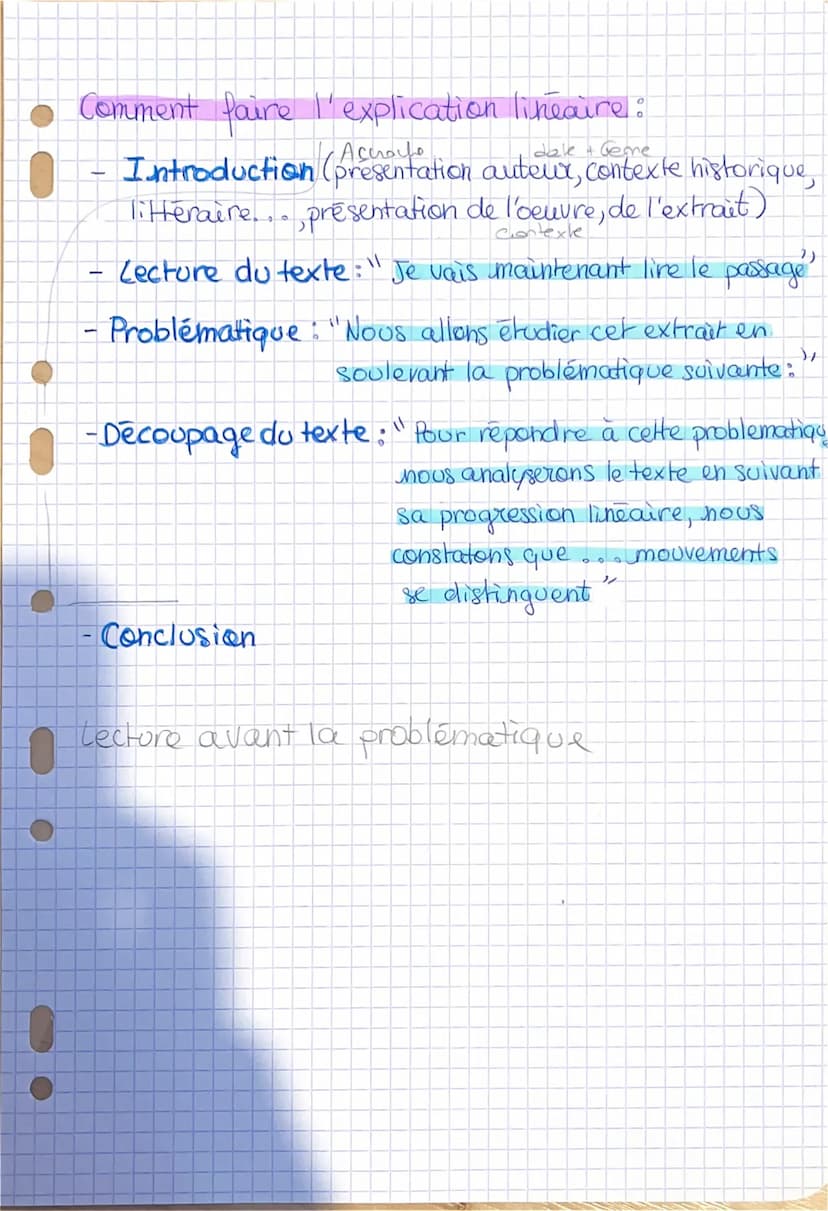 Comment faire l'explication linéaire :
Accroche date + Genre
- Introduction (présentation auteur, contexte historique,
littéraire..., présentation de l'oeuvre, de l'extrait)
contexte
- Lecture du texte : "Je vais maintenant lire le passage"
- Problématique : "Nous allons étudier cet extrait en
soulevant la problématique suivante : "
- Découpage du texte : "Pour répondre à cette problematique
nous analyserons le texte en suivant
sa progression linéaire, nous
constatons que ... mouvements
se distinguent"
- Conclusion
Lecture avant la problématique